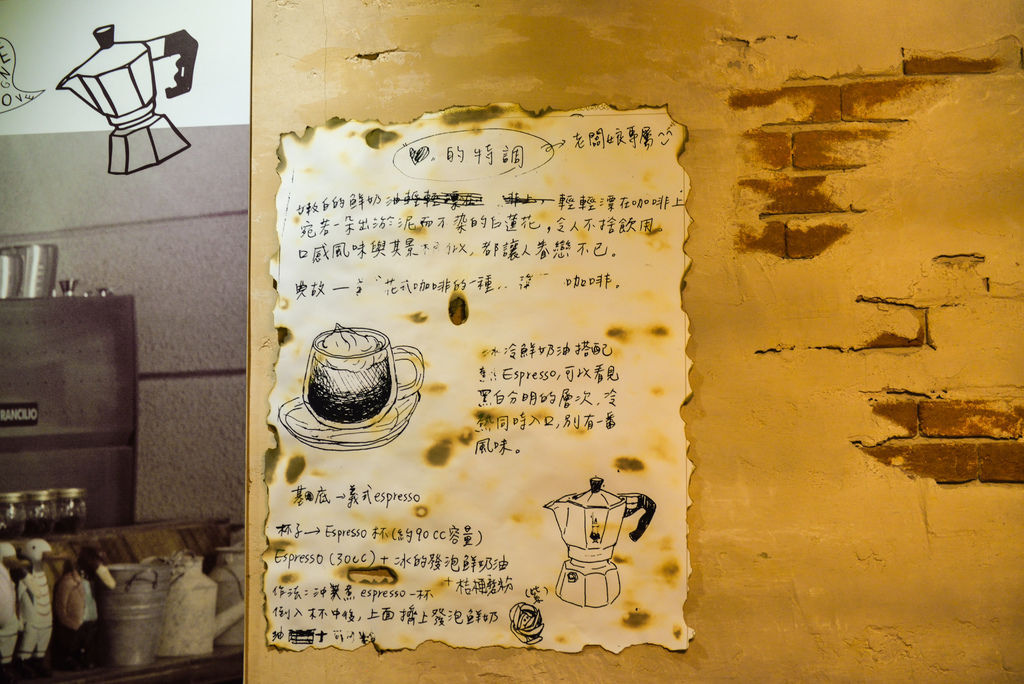 的特調 → 老闆娘專屬
嫩白的鮮奶油 輕輕漂在咖啡上
宛若一朵出淤泥而不染的白蓮花,令人不捨飲用。
口感風味與其景 都讓人眷戀不已。
典故 一 花式咖啡的一種 咖啡。
冰冷鮮奶油搭配
Espresso,可以看見
黑白分明的層次,冷
熱同時入口,別有一番
風味。
基底→義式espresso
杯子→Espresso杯(約90cc容量)
Espresso(30cc)+冰的發泡鮮奶油
+
作法: 煮espresso一杯
(紫)
倒入杯中後,上面擠上發泡鮮奶
油
RANCILIO